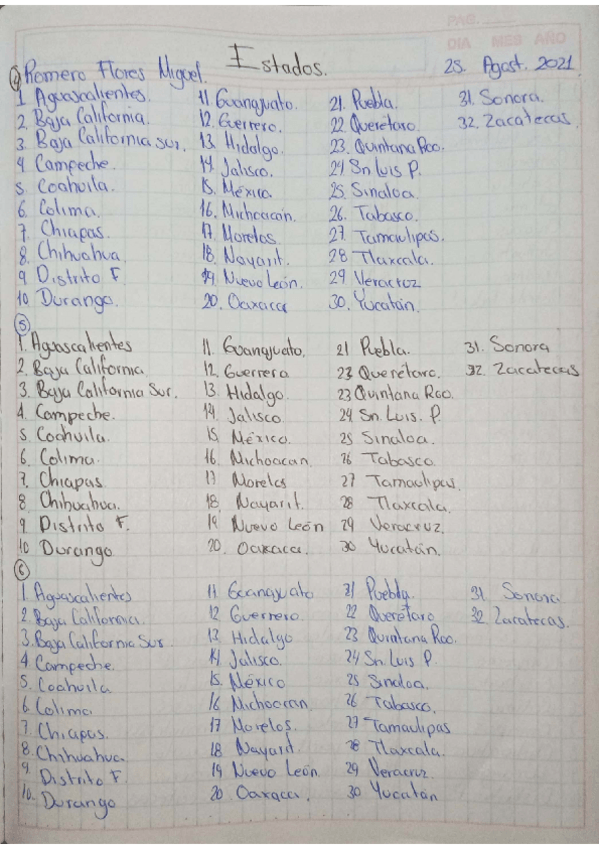 PAG.
DIA MES AÑO
Estados.
④ Romero Flores Miguel. 25. Agost. 2021
1 Aguascalientes. 11 Guanajuato. 21. Puebla. 31. Sonora.
2. Baja California. 12. Guerrero. 22 Querétaro. 32. Zacatecas
3. Baja California Sur. 13 Hidalgo. 23. Quintana Roo.
4 Campeche. 14 Jalisco. 24 Sn Luis P.
5 Coahuila. 15. México. 25 Sinaloa.
6. Colima. 16. Michoacán. 26. Tabasco.
7. Chiapas. 17 Morelos. 27. Tamaulipas.
8. Chihuahua. 18. Nayarit. 28 Tlaxcala.
9 Distrito F 19 Nuevo León. 29 Veracruz
10 Durango. 20. Oaxaca 30. Yucatán.
⑤
1. Aguascalientes 11. Guanajuato. 21 Puebla. 31. Sonora
2. Baja California 12. Guerrero 23 Querétaro. 32. Zacatecas
3. Baja California Sur. 13 Hidalgo. 23 Quintana Roo.
4. Campeche. 14 Jalisco 24 Sn. Luis. P.
5. Coahuila. 15 México. 25 Sinaloa.
6. Colima. 16 Michoacan. 26 Tabasco
7. Chiapas 17 Morelos 27 Tamaulipas.
8 Chihuahua. 18. Nayarit. 28 Tlaxcala.
9 Distrito F. 19 Nuevo León 29 Veracruz.
10 Durango 20. Oaxaca. 30 Yucatán.
⑥
1. Aguascalientes 11 Guanajuato 21 Puebla. 31 Sonora
2. Baja California. 12 Guerrero. 22 Querétaro 32 Zacatecas.
3. Baja California Sur. 13 Hidalgo 23 Quintana Roo.
4 Campeche. 14 Jalisco. 24 Sn. Luis P.
5. Coahuila 15. México 25 Sinaloa.
6 Colima. 16 Michoacan 26 Tabasco.
7. Chiapas. 17 Morelos. 27 Tamaulipas
8. Chihuahua. 18 Nayarit. 28 Tlaxcala.
9 Distrito F 19 Nuevo León. 29 Veracruz.
10. Durango 20 Oaxaca. 30 Yucatán